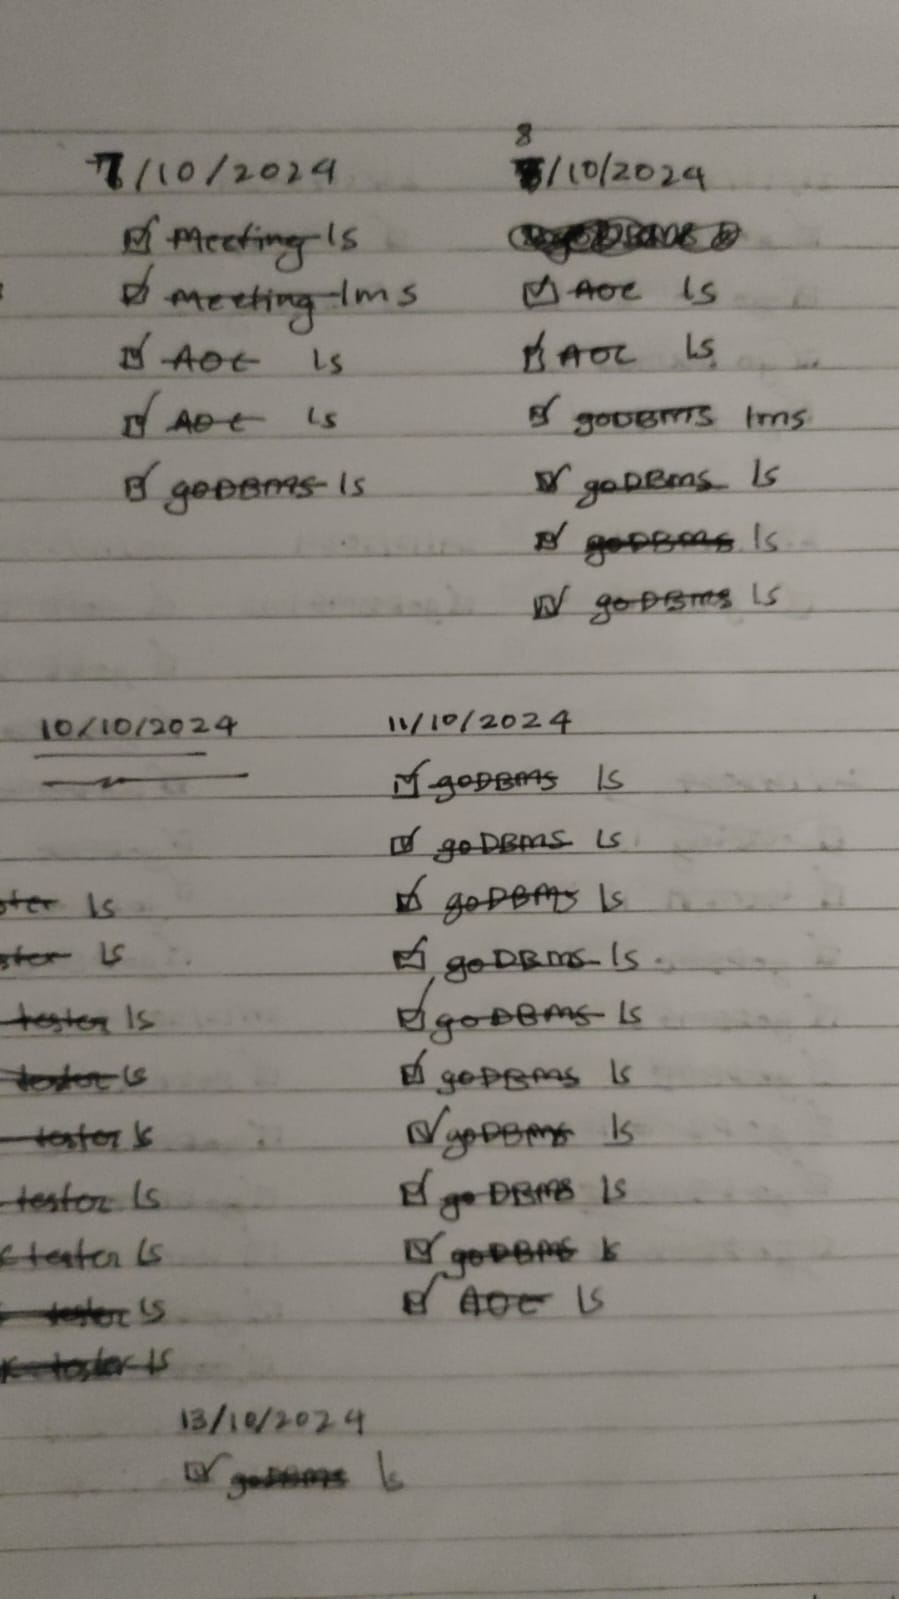 7/10/2024
Meeting 1s
Meeting 1ms
AOC 1s
AOC 1s
goDBMS 1s
8
/10/2024
AOC 1s
AOC 1s
goDBMS 1ms
goDBMS 1s
goDBMS 1s
goDBMS 1s
10/10/2024
ster 1s
ster 1s
tester 1s
tester 1s
tester 1s
tester 1s
tester 1s
tester 1s
tester 1s
11/10/2024
goDBMS 1s
goDBMS 1s
goDBMS 1s
goDBMS 1s
goDBMS 1s
goDBMS 1s
goDBMS 1s
goDBMS 1s
goDBMS 1s
AOC 1s
13/10/2024
goDBMS 1s